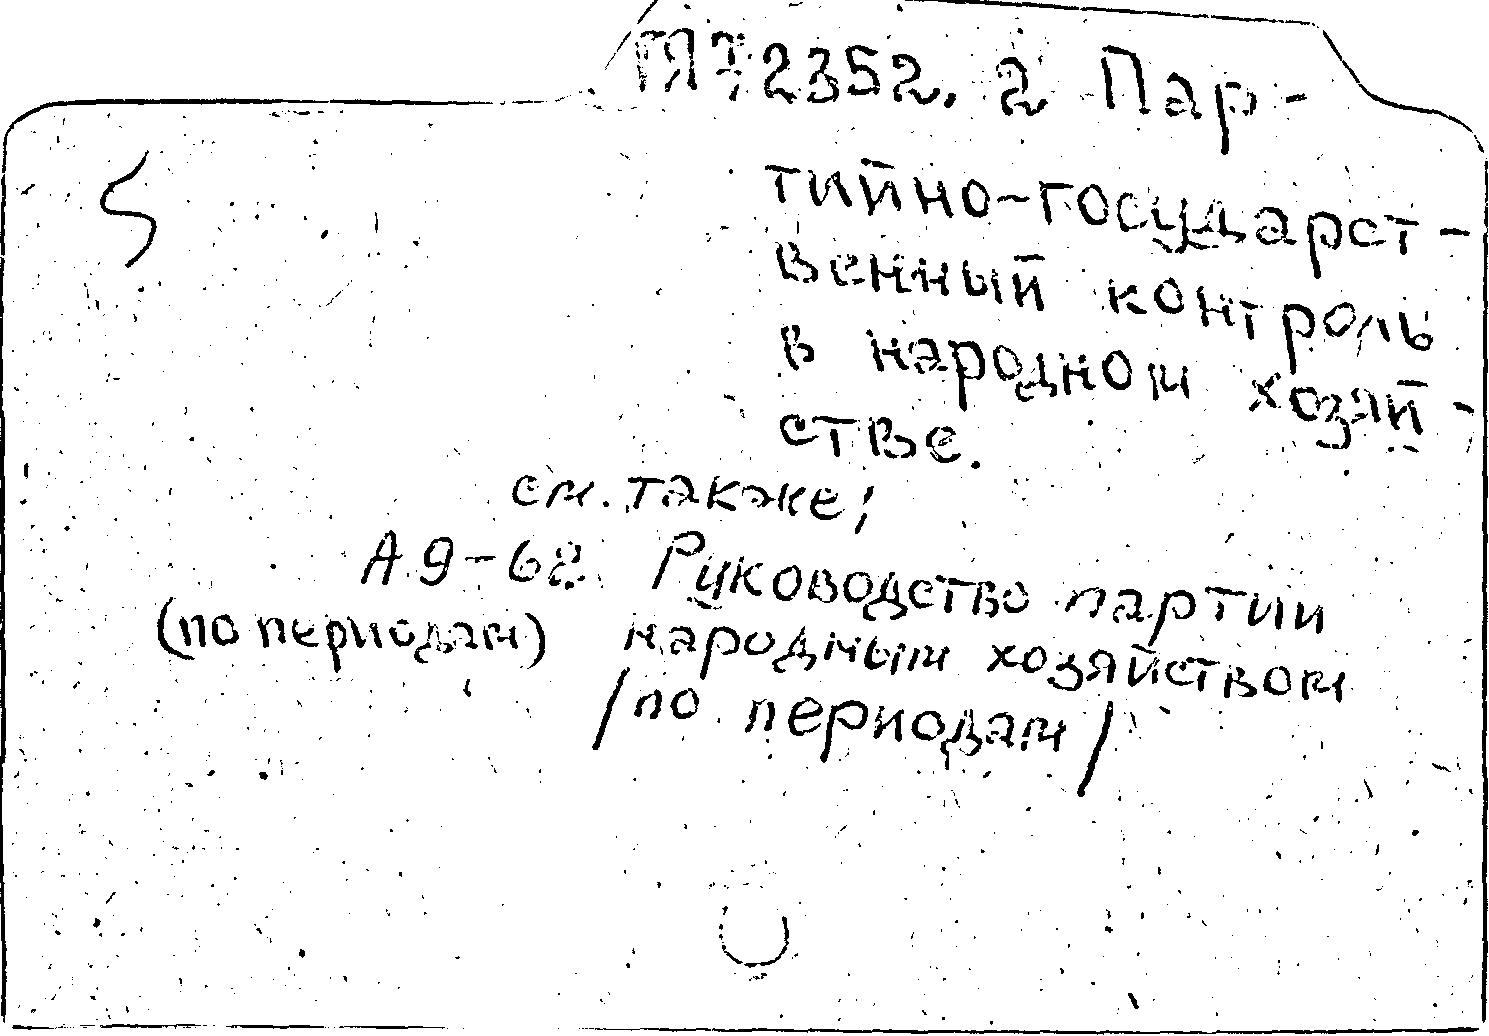 2352.2 Пар-
тийно-государст-
венный контроль
в народном хозяй-
стве.
см. также:
А9-62 Руководство партии
(по периодам) народным хозяйством
/по периодам/